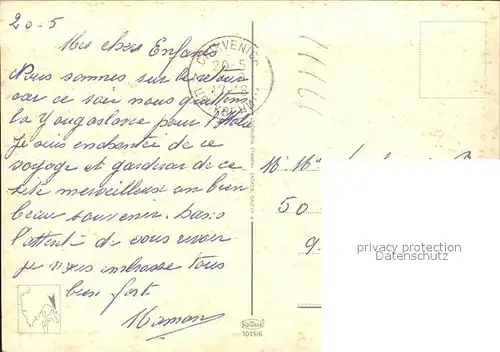 20-5
Mes chers Enfants
Nous sommes sur le retour
car ce soir nous quittons
la Yougoslavie pour l'Italie
je suis enchantée de ce
voyage et garderai de ce
site merveilleux un bien
beau souvenir. Dans
l'attente de vous revoir
je vous embrasse tous
bien fort
Maman
CRIKVENICA
20-5
17-18
50
9
privacy protection
Datenschutz
1015/6